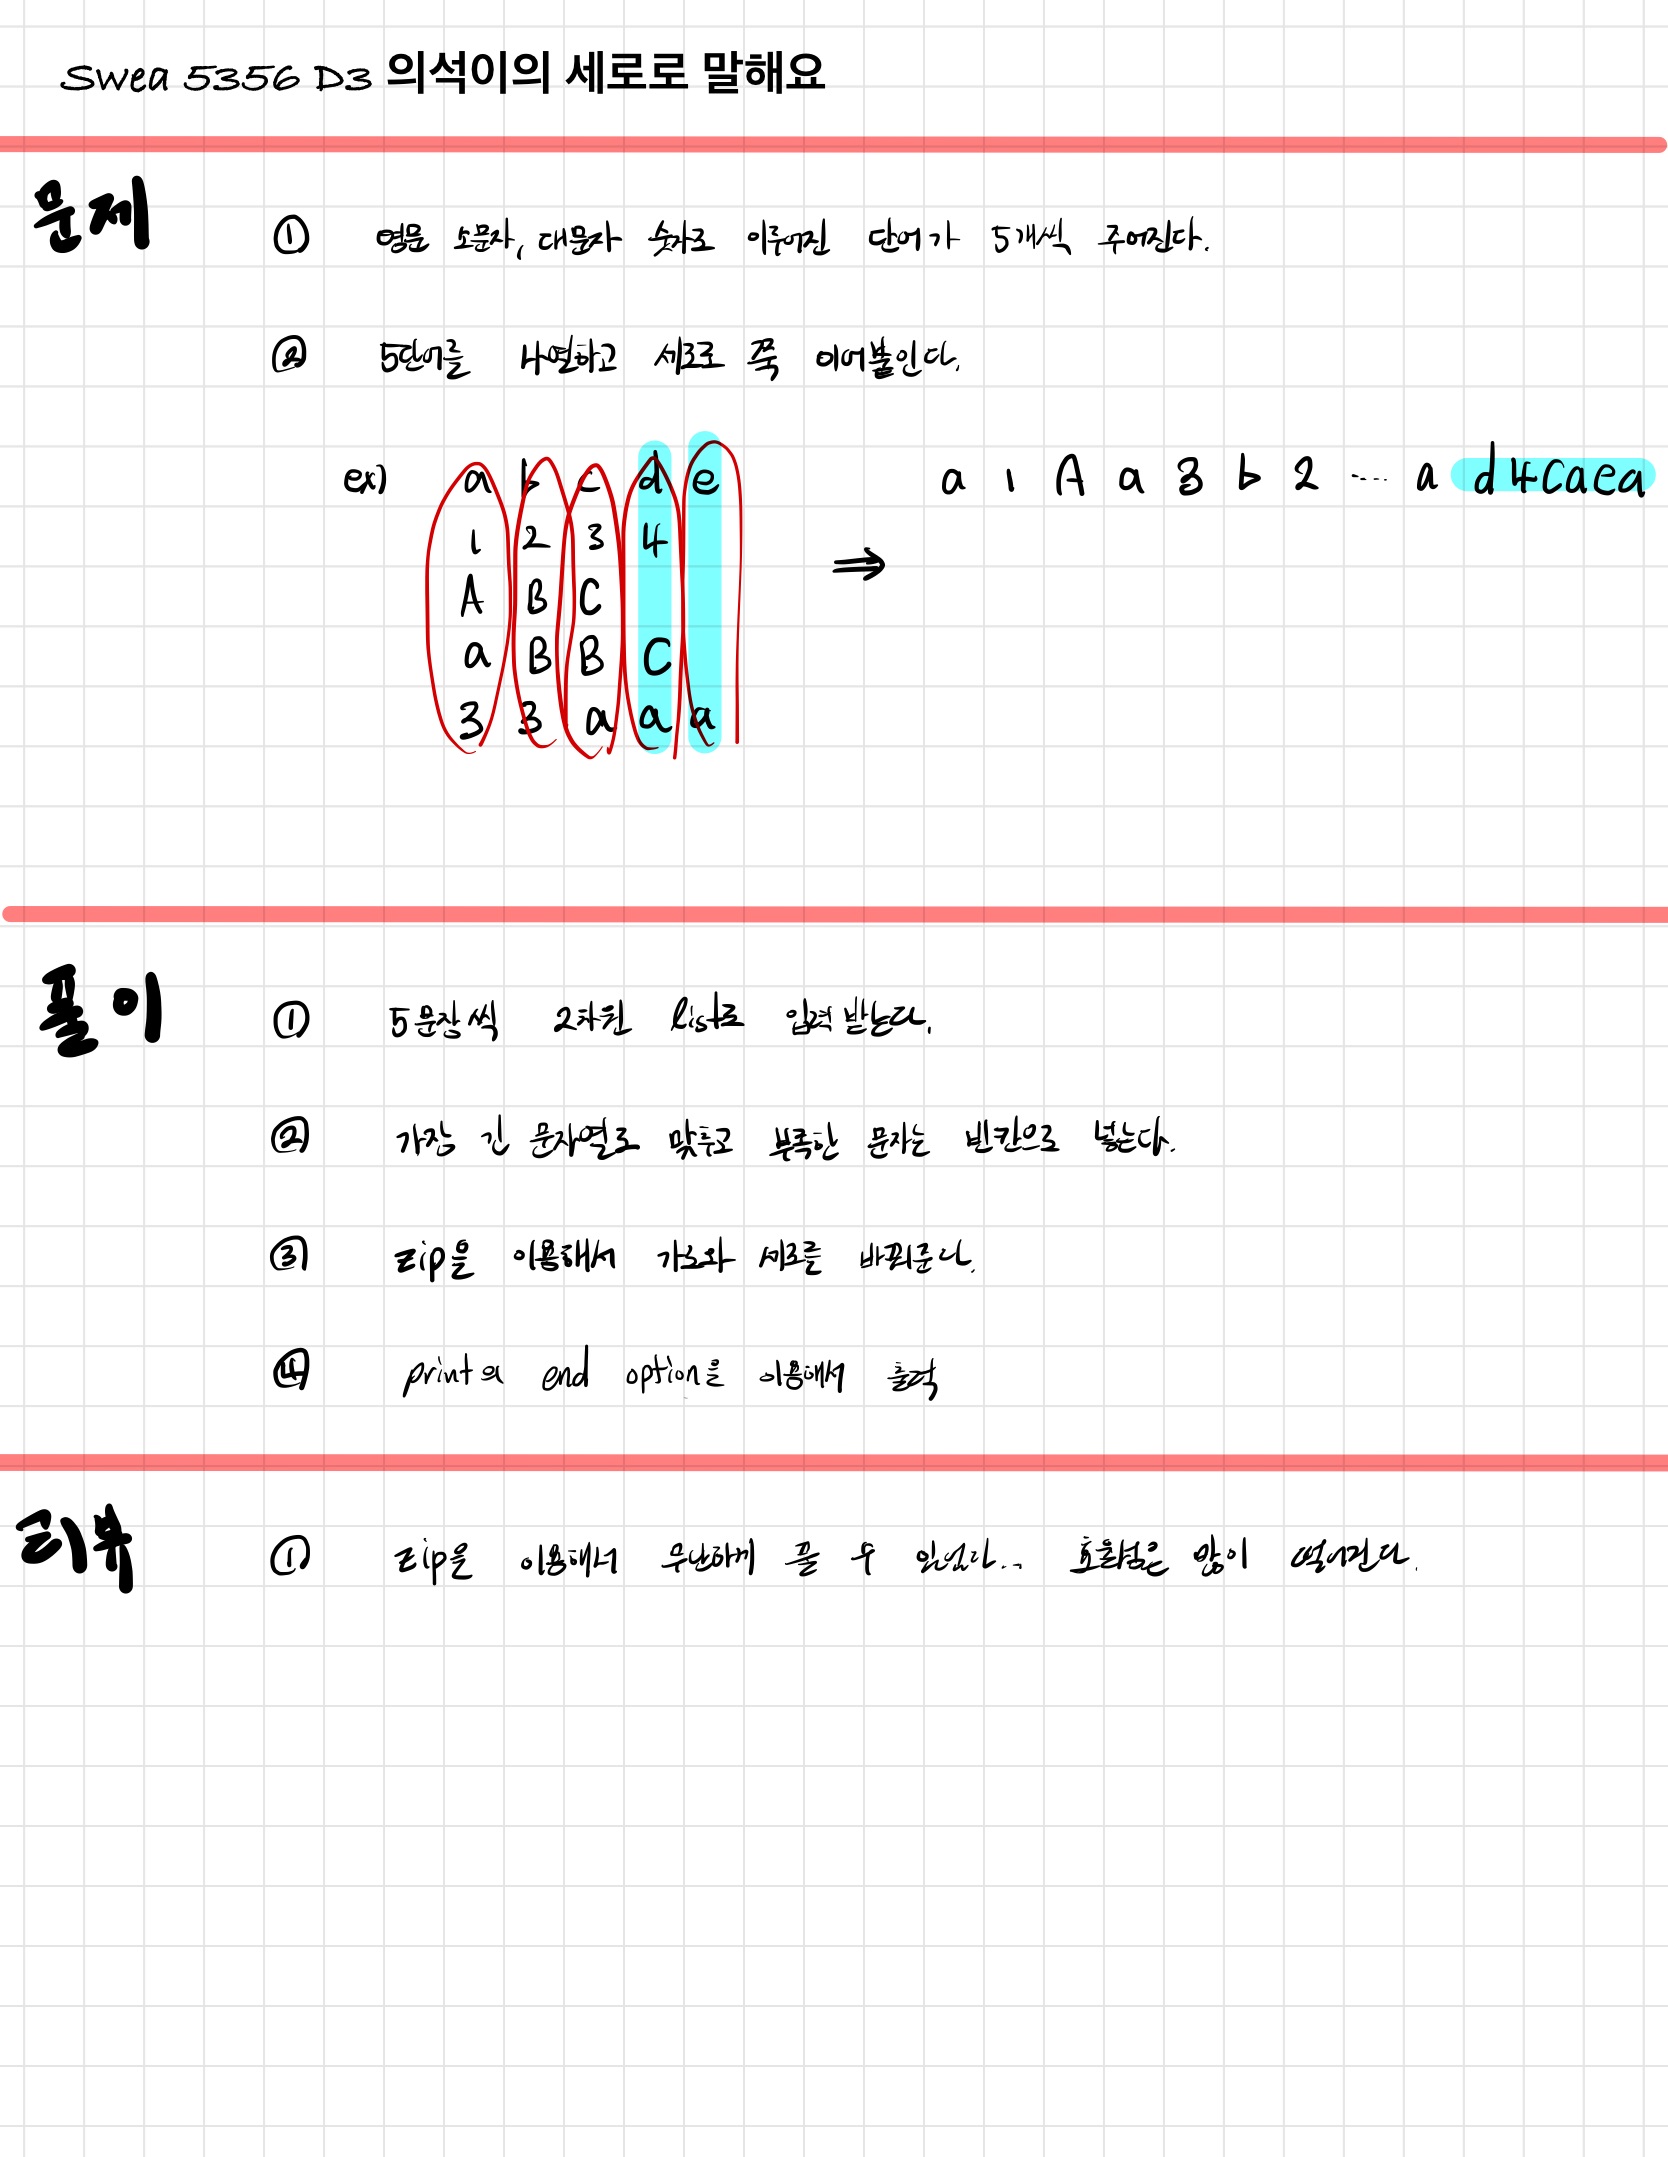 Swea 5356 D3 의석이의 세로로 말해요
문제
① 영문 소문자, 대문자 숫자로 이루어진 단어가 5개씩 주어진다.
② 5단어를 나열하고 세로로 쭉 이어붙인다.
ex) a b c d e
1 2 3 4
A B C
a B B C
3 3 a a a
⇒ a 1 A a 3 b 2 ---- a d4Caea
풀이
① 5문장씩 2차원 list로 입력받는다.
② 가장 긴 문자열로 맞추고 부족한 문자는 빈칸으로 넣는다.
③ zip을 이용해서 가로와 세로를 바꿔준다.
④ print의 end option을 이용해서 출력
리뷰
① zip을 이용해서 무난하게 풀 수 있었다... 효율성은 많이 떨어진다.